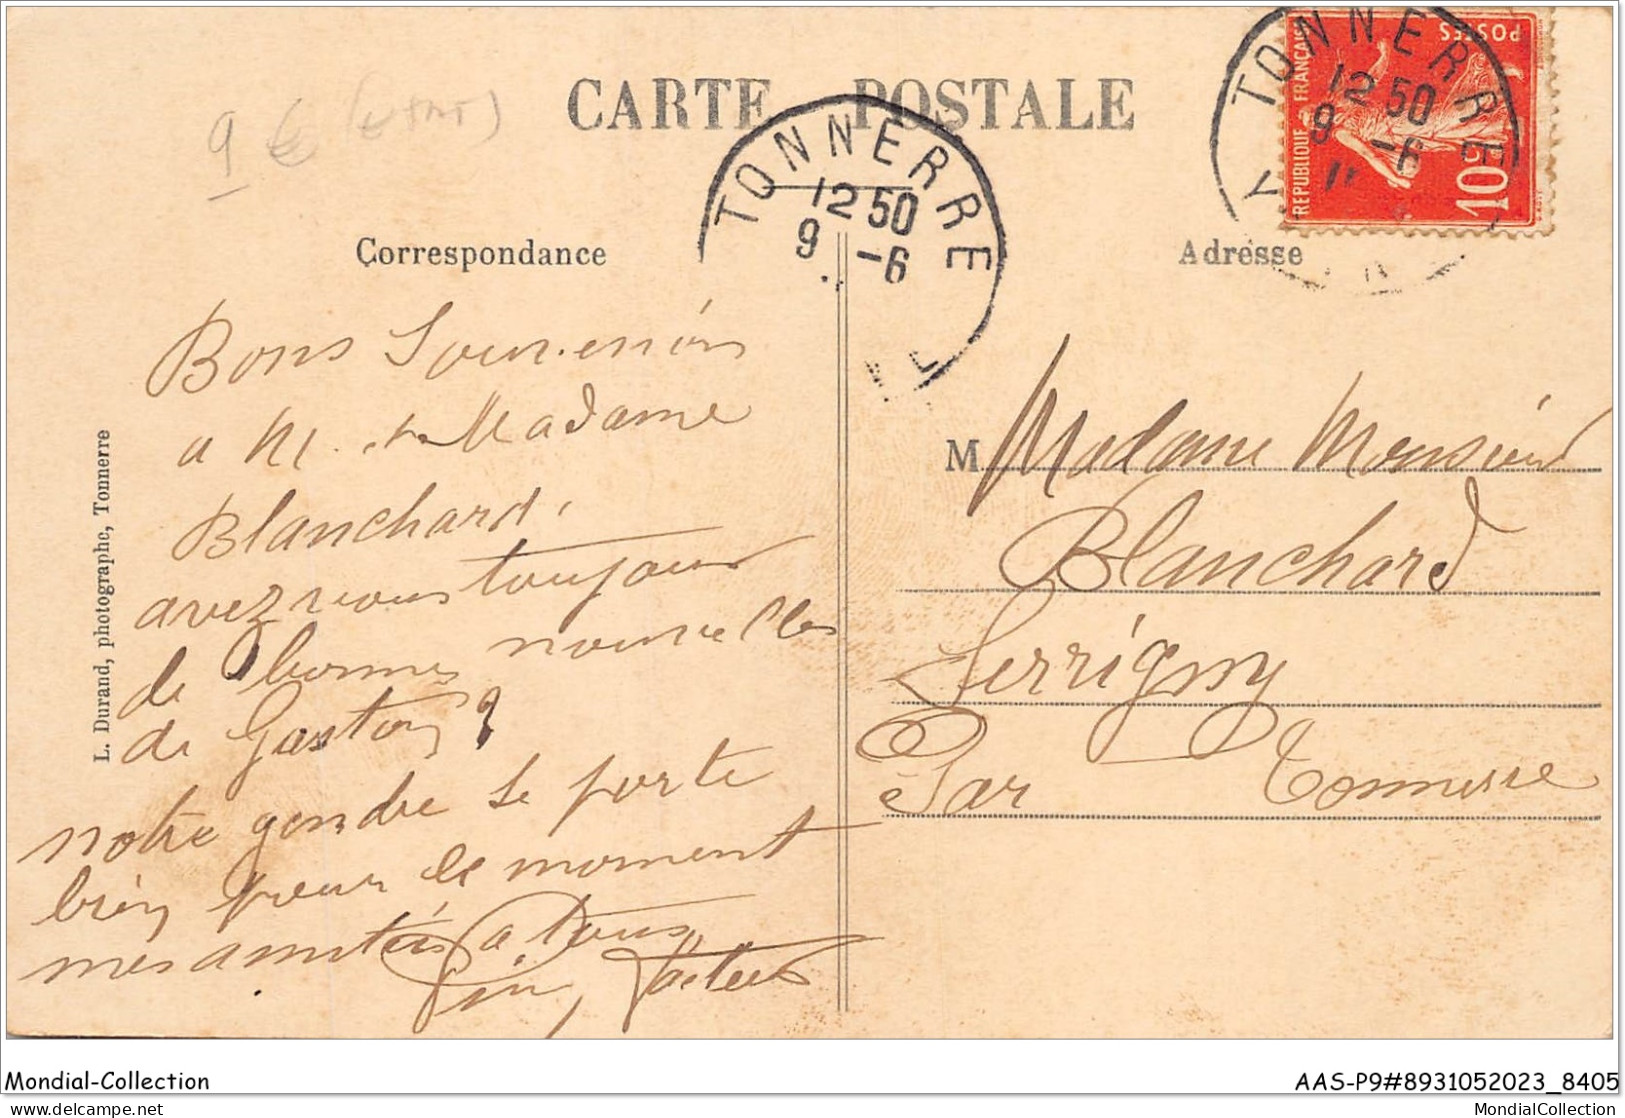 CARTE POSTALE
9 €
TONNERRE
12 50
9 -6
TONNERRE
12 50
9 -6
11
Y
REPUBLIQUE FRANÇAISE
POSTES
10c
Correspondance
Adresse
Bons Souvenirs
a M. et Madame
Blanchard.
avez vous toujours
de bonnes nouvelles
de Gaston ?
notre gendre se porte
bien pour le moment
mes amitiés a tous
L. Durand, photographe, Tonnerre
M Madame Monsieur
Blanchard
Serrigny
Par Tonnerre
Mondial-Collection
AAS-P9#8931052023_8405
MondialCollection
MondialCollection